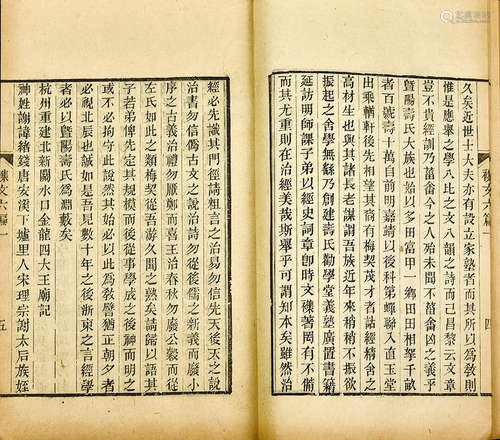 久矣近世士大夫亦有設立家塾者而其所以敎則
惟是應舉之學八比之文八韻之詩而已昌黎云文章
豈不貴經訓乃菑畬今之人殆未聞不菑畬凶之義乎
暨陽壽氏大族也始以多田富甲一鄉田田相挐千畝
者百號壽十萬自前明嘉靖以後科第蟬聯入直玉堂
出乘輶軒後先相望其裔有梅契茂才者詁經精舍之
高材生也與其諸長老謀謂吾族近年來稍稍不振欲
振起之舍學無繇乃創建壽氏勸學堂義塾廣置書籍
延訪明師課子弟以經史詞章卽時文禠著罔有不備
而其尤重則在治經美哉斯舉乎可謂知本矣雖然治
禠文六篇一
四
經必先識其門徑請粗言之治易勿信先天後天之說
治書勿信僞古文之說治詩勿從後儒之新義而廢小
序之古義治禮勿厭鄭而喜王治春秋勿廢公穀而從
左氏如此之類梅契從吾游久聞之熟矣請歸以語其
子若弟俾先定其規模而後從事學成之後神而明之
或不必拘守此說然其始必以此爲敎譬猶正朝夕者
必視北辰也誠如是吾見數十年之後浙東之言經學
者必以暨陽壽氏爲淵藪矣
杭州重建北新關水口金龍四大王廟記
神姓謝諱緒錢唐安溪下墟里人宋理宗謝太后族姪
禠文六編一
五